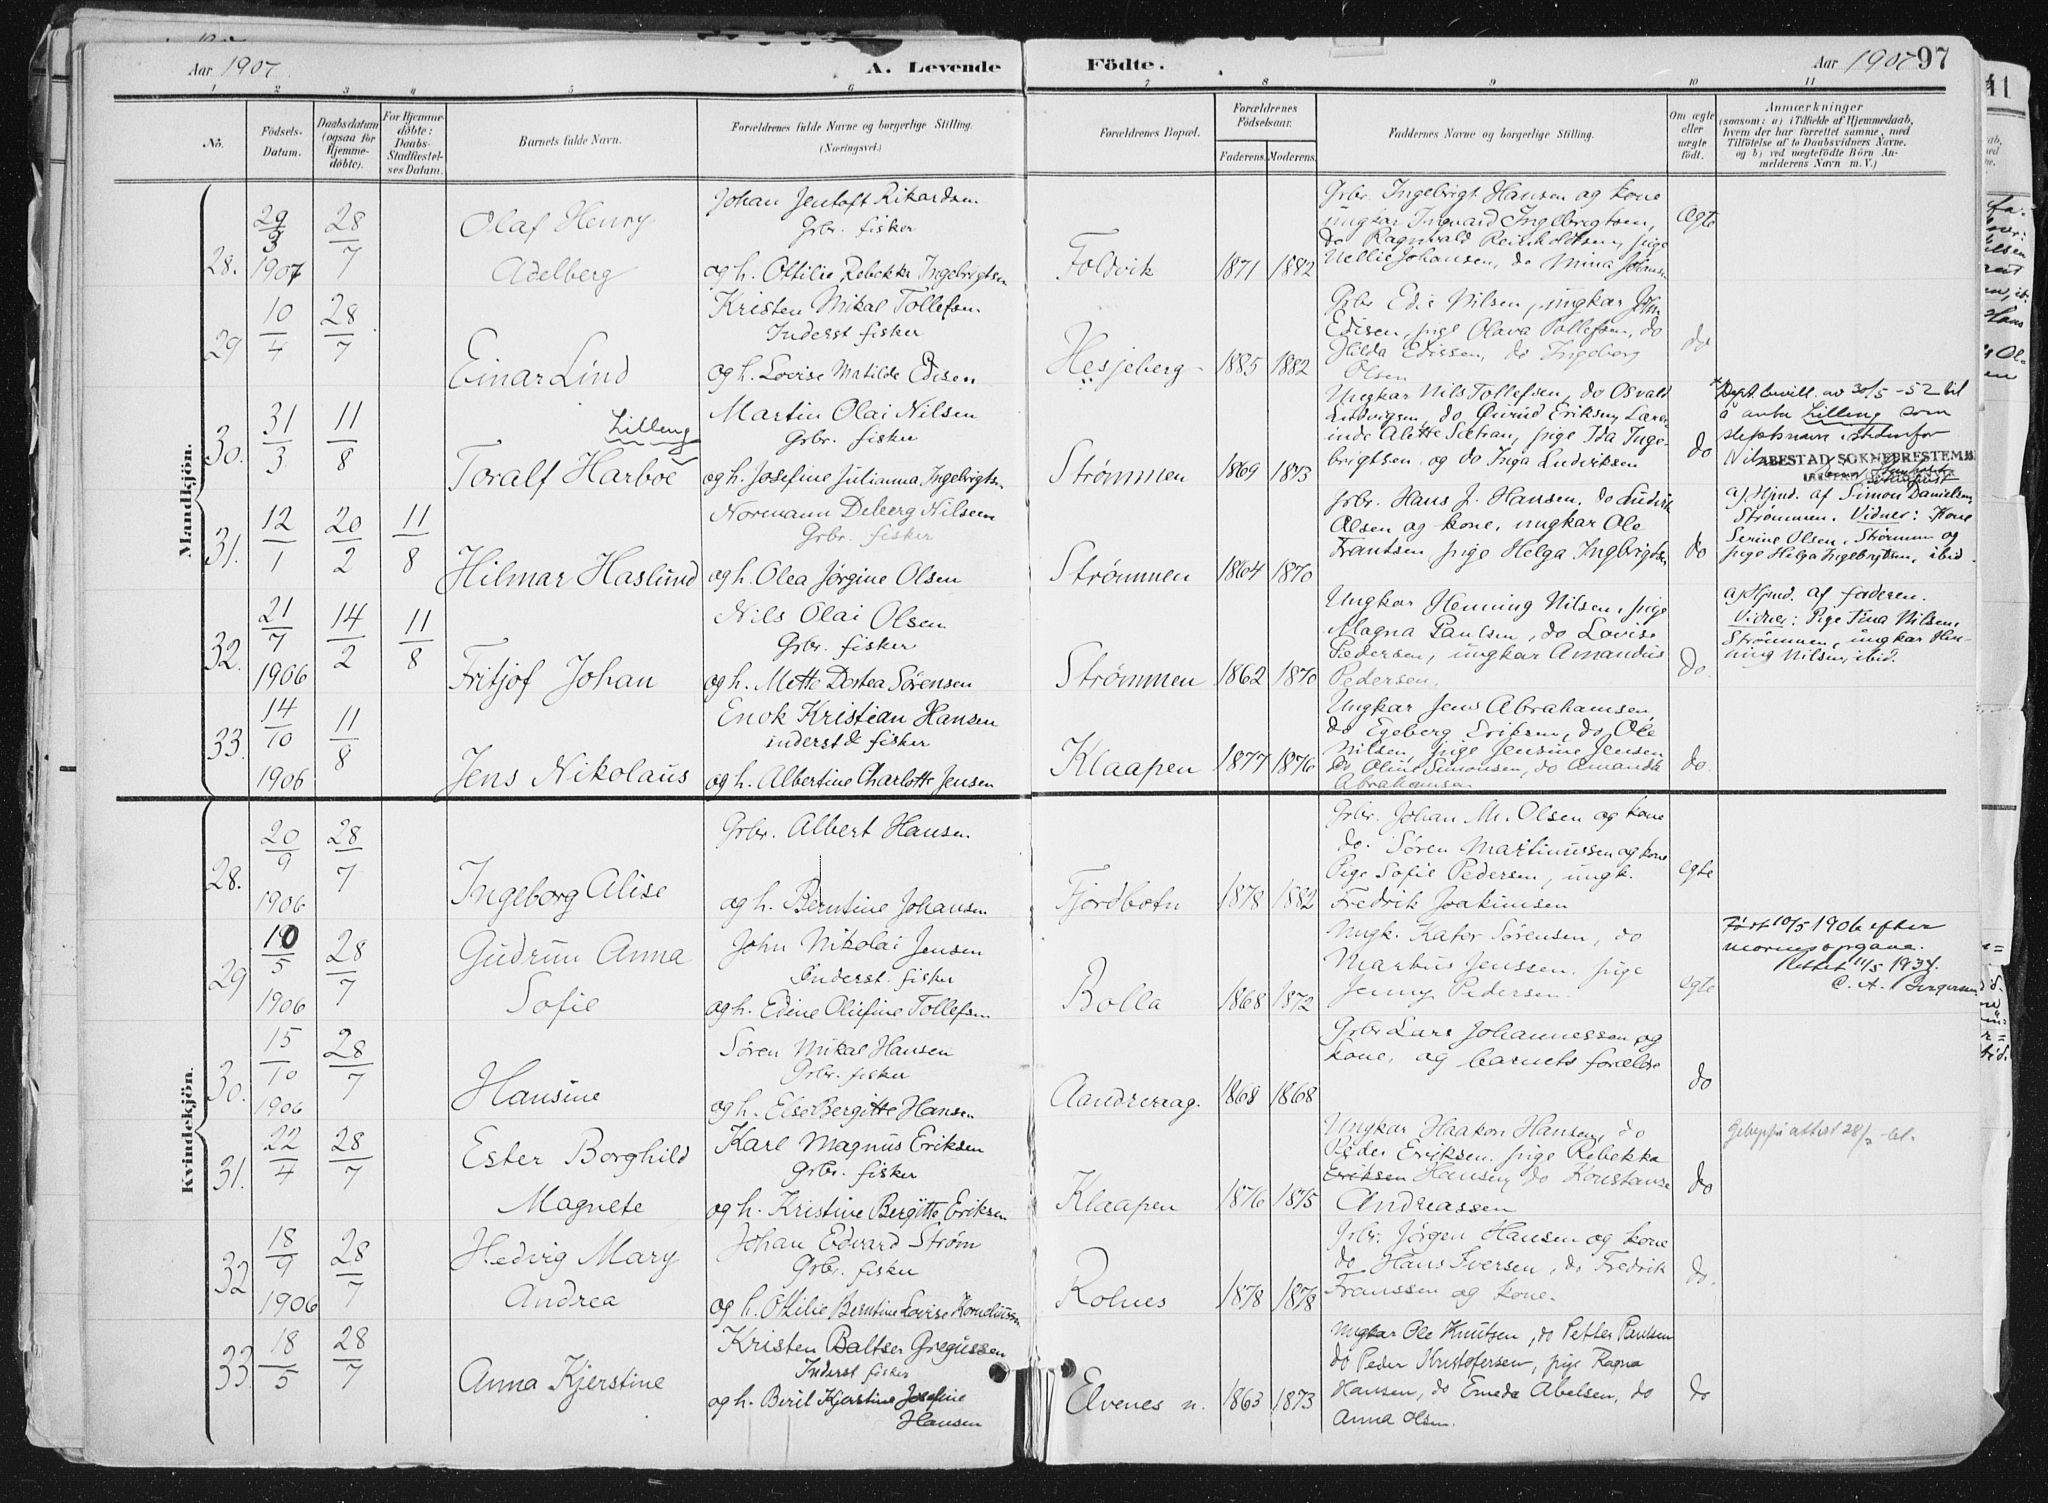 Aar 1907.
A. Levende
Födte.
Aar 1907
97
1 2 3 4 5 6 7 8 9 10 11
No.
Födsels-
Datum.
Daabsdatum
(ogsaa for
Hjemme-
døbte).
For Hjemme-
døbte:
Daabs-
Stadfæstel-
ses Datum.
Barnets fulde Navn.
Forældrenes fulde Navne og borgerlige Stilling.
(Næringsvei.)
Forældrenes Bopæl.
Forældrenes
Födselsaar.
Faderens. Moderens.
Faddernes Navne og borgerlige Stilling.
Om ægte
eller
uægte
født.
Anmærkninger
(saasom: a) i Tilfælde af Hjemmedaab,
hvem der har forrettet samme, med
Tilföielse af to Daabsvidners Navne.
og b) ved uægtefödte Börn An-
melderens Navn m. V.)
Mandkjön.
28.
29/3 1907
28/7
Olaf Henry
Adelberg
Johan Jentoft Rikardsen
Grbr. fisker
og h. Ottilie Rebekka Ingebrigtsen
Foldvik
1871 1882
Grbr. Ingebrigt Hansen og kone
ungkar Ingvard Ingebrigtsen,
do Ragnvald Reinholdtsen, pige
Nellie Johansen, do Mina Johansen
Ægte
29
10/4
28/7
Einar Lind
Kristen Mikal Tollefsen
Inderst fisker
og h. Lovise Matilde Edisen
Hesjeberg
1885 1882
Grbr Edis Nilsen, ungkar John
Edisen, pige Olava Tollefsen, do
Hilda Edissen, do Ingeborg
Olsen
do
30.
31/3
11/8
Lilleng
Toralf Harboe
Martin Olai Nilsen
Grbr. fisker
og h. Josefine Julianna Ingebrigtsn
Strømmen
1869 1873
Ungkar Nils Tollefsen, do Osvald
Ludvigsen, do Øivind Eriksen, Lærer-
inde Alette Sætran, pige Ida Inge-
brigtsen og do Inga Ludviksen
do
Dept. bevill. av 30/5-52 til
å anta Lilleng som
slektsnavn istedenfor
Nilsen
IBESTAD SOKNEPRESTEMB
31.
12/1
20/2
11/8
Hilmar Haslund
Normann Deberg Nilsen
Grbr. fisker
og h. Olea Jørgine Olsen
Strømmen
1864 1870
Grbr. Hans J. Hansen, do Ludvik
Olsen og kone, ungkar Ole
Frantsen, pige Helga Ingebrigtsn
do
a) Hjmd. af Simon Danielsen,
Strømmen. Vidner: Kone
Serine Olsen, Strømmen og
pige Helga Ingebrigtsen, ibid.
32.
21/7 1906
14/2
11/8
Fritjof Johan
Nils Olai Olsen
Grbr. fisker
og h. Mette Dortea Sørensen
Strømmen
1862 1870
Ungkar Henning Nilsen, pige
Magna Paulsen, do Lovise
Pedersen, ungkar Amandus
Pedersen.
do.
a) Hjmd. af faderen.
Vidner: Pige Tina Nilsen,
Strømmen, ungkar Hen-
ning Nilsen, ibid.
33.
14/10 1906
11/8
Jens Nikolaus
Enok Kristian Hansen
inderst & fisker
og h. Albertine Charlotte Jensen
Klaapen
1877 1876
Ungkar Jens Abrahamsen,
do Egeberg Eriksen, do Ole
Nilsen, pige Jensine Jensen
do Oline Simonsen, do Amanda
Abrahamsen
do.
Kvindekjön.
28.
20/9 1906
28/7
Ingeborg Alise
Grbr. Albert Hansen
og h. Berntine Johansen
Fjordbotn
1878 1882
Grbr. Johan M. Olsen og kone
do. Søren Martinussen og kone
Pige Sofie Pedersen, ungk.
Fredrik Joakimsen
egte
29
10/5 1906
28/7
Gudrun Anna
Sofie
John Nikolai Jensen
Inderst. fisker
og h. Edine Olufine Tollefsen
Bolla
1868 1872
Ungk. Kator Sørensen, do
Markus Jenssen, pige
Jenny Pedersen.
egte
Født 10/5 1906 efter
morens opgave.
Rettet 11/5 1934.
30.
15/10 1906
28/7
Hansine
Søren Mikal Hansen
Grbr. fisker
og h. Else Bergitte Hansen
Aandreraag.
1868 1868
Grbr Lars Johannessen og
kone, og barnets forældre
do
31.
22/4
28/7
Ester Borghild
Magnete
Karl Magnus Eriksen
Grbr. fisker
og h. Kristine Bergitte Eriksen
Klaapen
1876 1875
Ungkar Haakon Hansen, do
Peder Eriksen, pige Rebekka
Eriksen Hansen, do Konstanse
Andreassen
do
32
18/9 1906
28/7
Hedvig Mary
Andrea
Johan Edvard Strøm
Grbr. fisker
og h. Ottilie Berntine Lovise Korneliussen
Rolnes
1878 1878
Grbr. Jørgen Hansen og kone
do Hans Iversen, do Fredrik
Franssen og kone.
do.
33.
18/5
28/7
Anna Kjerstine
Kristen Baltser Gregussen
Inderst fisker
og h. Beril Kjerstine Josefine
Hansen
Elvenes n.
1863 1873
Ungkar Ole Knutsen, do Petter Paulsen
do Peder Kristofersen, pige Ragna
Hansen, do Emeda Abelsen, do
Anna Olsen.
do